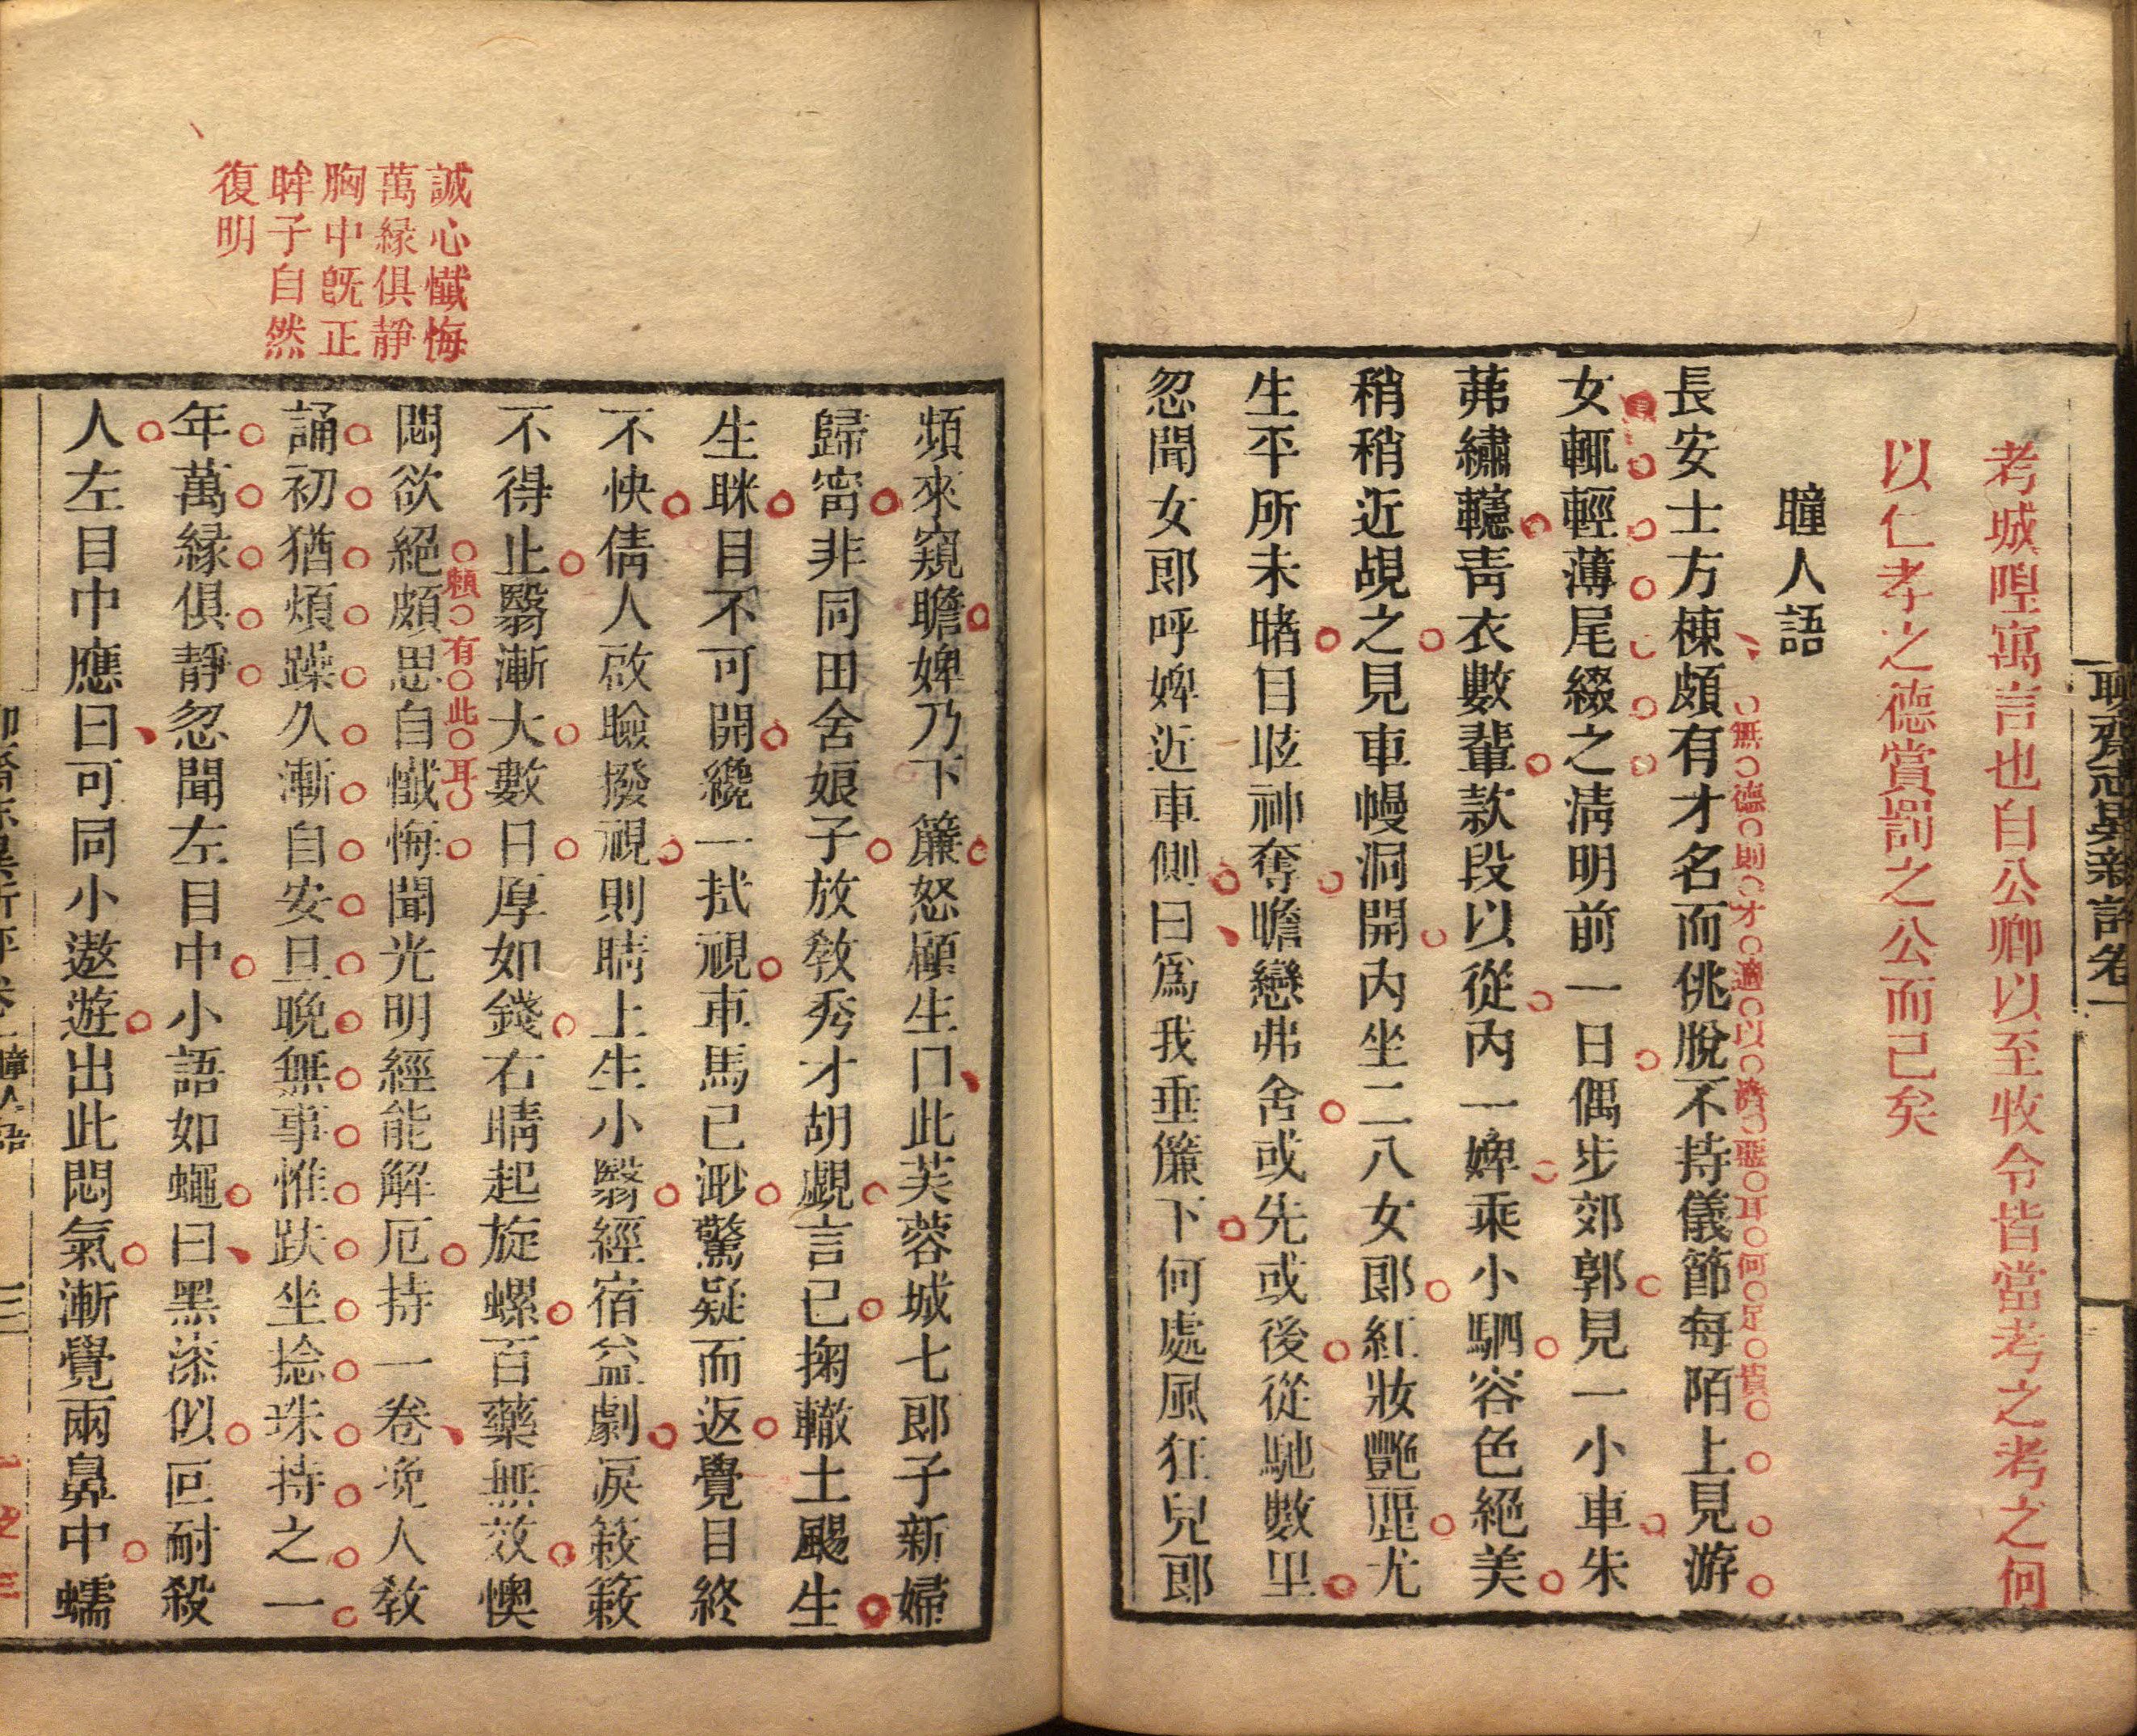 聊齋志異新評卷一
考城隍寓言也自公卿以至牧令皆當考之考之何
以仁孝之德賞罰之公而已矣
瞳人語
長安士方棟頗有才名而佻脫不持儀節每陌上見游
無德則才適以濟惡耳何足貴
女輒輕薄尾綴之清明前一日偶步郊郭見一小車朱
茀繡幰青衣數輩款段以從內一婢乘小駟容色絕美
稍稍近覘之見車幔洞開內坐二八女郎紅妝艷麗尤
生平所未睹目眩神奪瞻戀弗舍或先或後從馳數里
忽聞女郎呼婢近車側曰為我垂簾下何處風狂兒郎
頻來窺瞻婢乃下簾怒顧生曰此芙蓉城七郎子新婦
歸寗非同田舍娘子放敎秀才胡覷言已掬轍土颺生
生眯目不可開纔一拭視車馬已渺驚疑而返覺目終
不快倩人啟瞼撥視則睛上生小翳經宿益劇淚簌簌
不得止翳漸大數日厚如錢右睛起旋螺百藥無效懊
賴有此耳
悶欲絕頗思自懺悔聞光明經能解厄持一卷浼人敎
誦初猶煩躁久漸自安旦晚無事惟趺坐捻珠持之一
年萬緣俱靜忽聞左目中小語如蠅曰黑漆似叵耐殺
人左目中應曰可同小遨遊出此悶氣漸覺兩鼻中蠕
誠心懺悔
萬緣俱靜
胸中旣正
眸子自然
復明
瞳人語
三